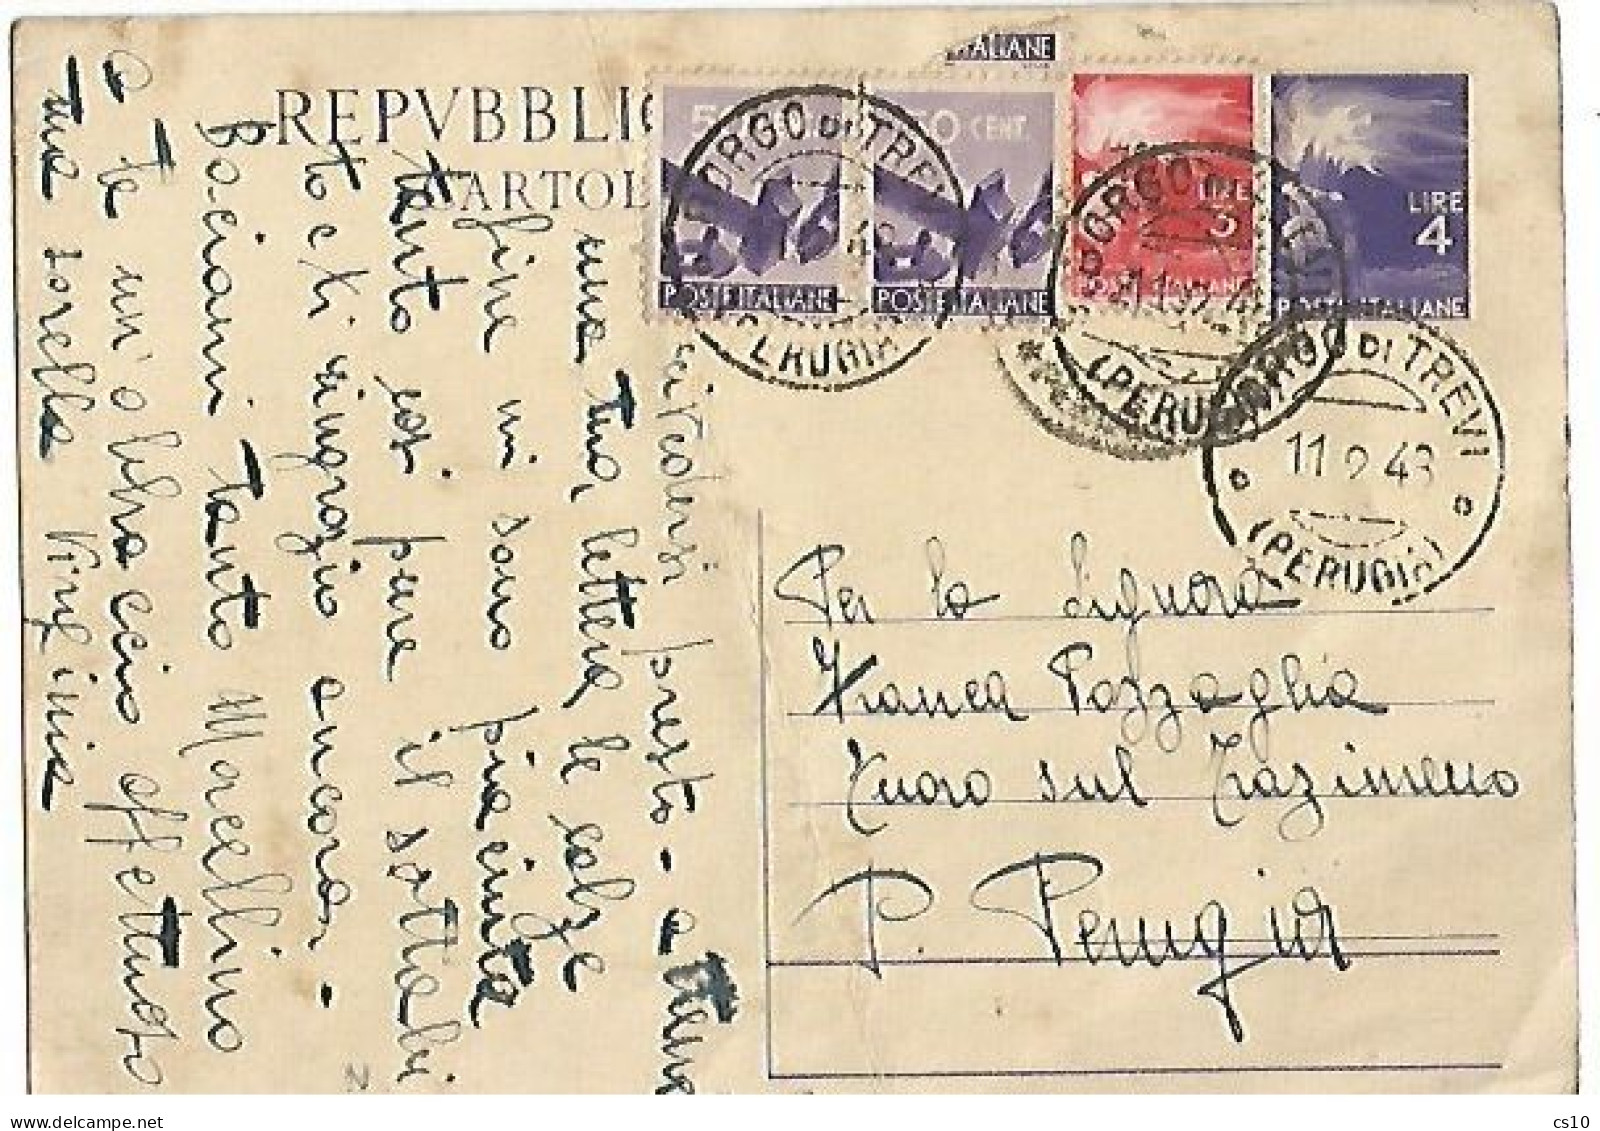 ITALIANE
REPVBBLIC
CARTOL
50 CENT.
POSTE ITALIANE
POSTE ITALIANE
LIRE
3
POSTE ITALIANE
LIRE
4
POSTE ITALIANE
BORGO DI TREVI
(PERUGIA)
BORGO DI TREVI
(PERUGIA)
BORGO DI TREVI
11 2 48
(PERUGIA)
Per la Signora
Franca Pozzaglia
Tuoro sul Trasimeno
P. Perugia
presto - attene
una tua lettera le calze
fine mi sono piaciute
tanto così pure il
to e ti ringrazio ancora -
Baciami tanto Marcellino
a te un'abbraccio affettuoso
tua sorella Virginia
delcampe.net
cs10